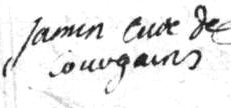 Jamin Curé de
Louvgains